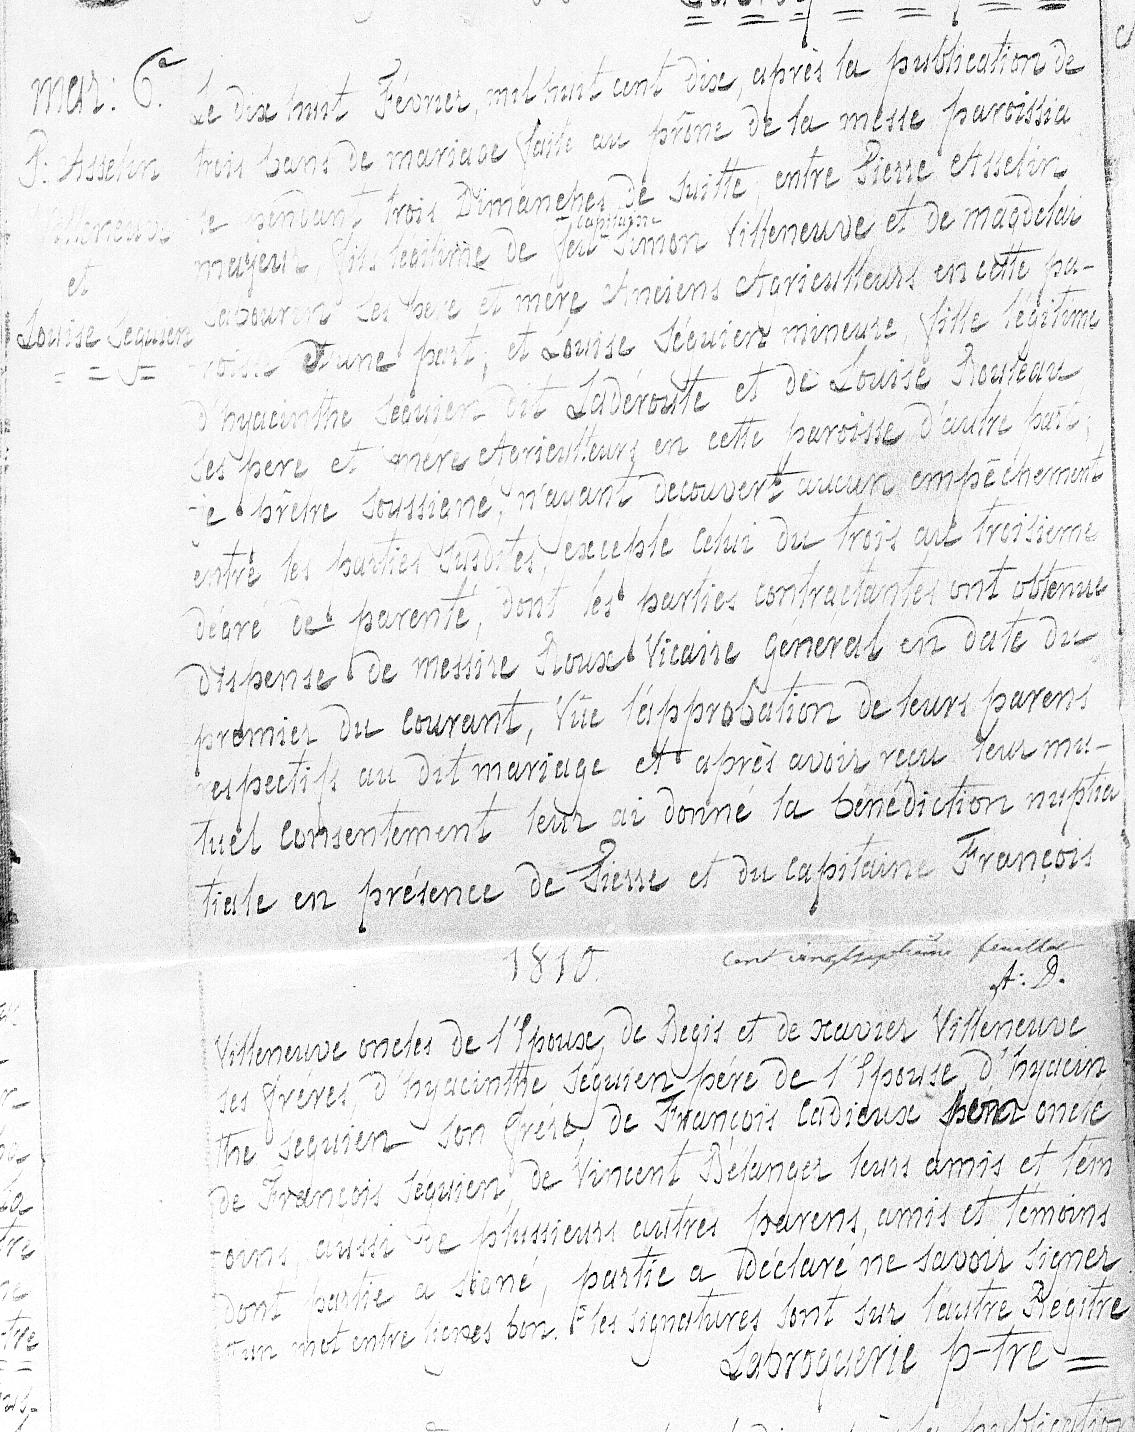 mar: 6.e
P: Asselin
Villeneuve
et
Louise Seguien
Le dix huit Février, mil huit cent dix, après la publication de
trois bans de mariage faite au prône de la messe paroissia
le pendant trois Dimanches de suitte, entre Pierre Asselin
Capitaine
majeur fils légitime de feu Simon Villeneuve et de magdelai
Labouren ses père et mère Anciens Agriculteurs en cette pa-
roisse d'une part; et Louise Séguien mineure, fille légitime
d'hyacinthe Seguien dit Ladéroute et de Louise Rouleau
ses père et mère Agriculteurs en cette paroisse d'autre part;
je prêtre soussigné, n'ayant decouvert aucun empêchement
entre les parties susdites, excepté celui du trois au troisieme
dégré de parenté, dont les parties contractantes ont obtenue
dispense de messire Roux Vicaire Général en date du
premier du courant, Vûe l'approbation de leurs parens
respectifs au dit mariage et après avoir reçu leur mu-
tuel consentement leur ai donné la bénédiction nuptia
tiale en présence de Pierre et du capitaine François
1810.
cent vingtseptième feuillet
A: D.
Villeneuve oncles de l'Epoux, de Regis et de xavier Villeneuve
ses freres, d'hyacinthe Séguien pere de l'Epouse, d'hyacin
the Seguien son frére, de François Cadieux oncle
de François Seguien, de Vincent Bélanger leurs amis et tém
oins, aussi de plussieurs autres parens, amis et témoins
dont partie a signé, partie a déclaré ne savoir signer
un mot entre lignes bon. les signatures sont sur l'autre Régitre
Labroquerie p-tre =
publication